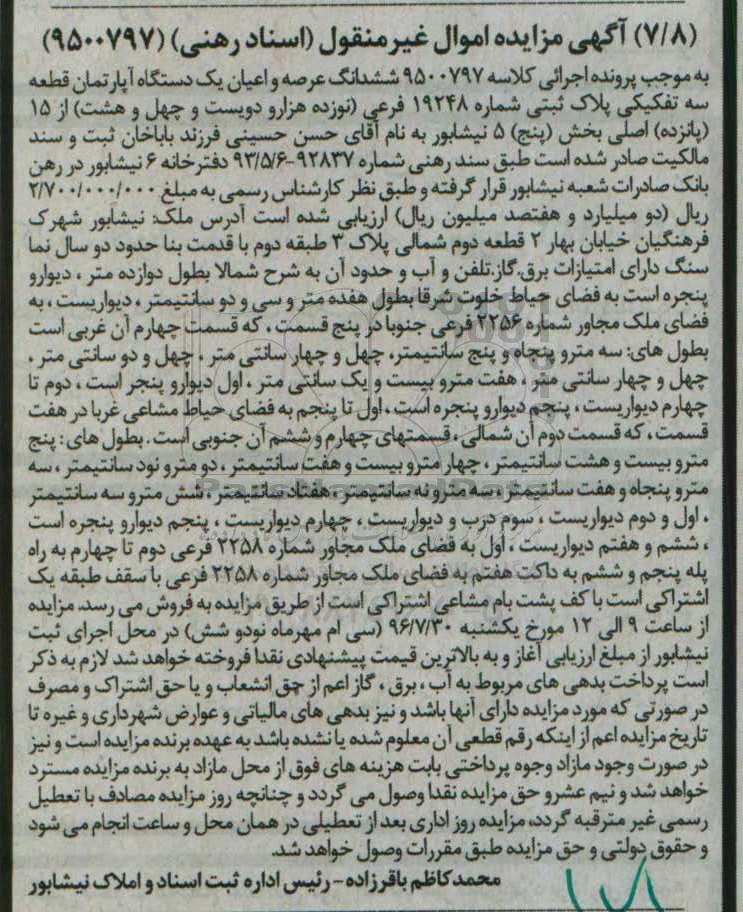 (۷/۸) آگهی مزایده اموال غیرمنقول (اسناد رهنی) (۹۵۰۰۷۹۷)
به موجب پرونده اجرائی کلاسه ۹۵۰۰۷۹۷ ششدانگ عرصه و اعیان یک دستگاه آپارتمان قطعه
سه تفکیکی پلاک ثبتی شماره ۱۹۲۴۸ فرعی (نوزده هزارو دویست و چهل و هشت) از ۱۵
(پانزده) اصلی بخش (پنج) ۵ نیشابور به نام آقای حسن حسینی فرزند باباخان ثبت و سند
مالکیت صادر شده است طبق سند رهنی شماره ۹۲۸۳۷-۹۳/۵/۶ دفترخانه ۶ نیشابور در رهن
بانک صادرات شعبه نیشابور قرار گرفته و طبق نظر کارشناس رسمی به مبلغ ۲/۷۰۰/۰۰۰/۰۰۰
ریال (دو میلیارد و هفتصد میلیون ریال) ارزیابی شده است آدرس ملک: نیشابور شهرک
فرهنگیان خیابان بهار ۲ قطعه دوم شمالی پلاک ۳ طبقه دوم با قدمت بنا حدود دو سال نما
سنگ دارای امتیازات برق.گاز.تلفن و آب و حدود آن به شرح شمالا بطول دوازده متر ، دیوارو
پنجره است به فضای حیاط خلوت شرقا بطول هفده متر و سی و دو سانتیمتر ، دیواریست ، به
فضای ملک مجاور شماره ۲۲۵۶ فرعی جنوبا در پنج قسمت ، که قسمت چهارم آن غربی است
بطول های: سه مترو پنجاه و پنج سانتیمتر، چهل و چهار سانتی متر ، چهل و دو سانتی متر ،
چهل و چهار سانتی متر ، هفت مترو بیست و یک سانتی متر ، اول دیوارو پنجر است ، دوم تا
چهارم دیواریست ، پنجم دیوارو پنجره است ، اول تا پنجم به فضای حیاط مشاعی غربا در هفت
قسمت ، که قسمت دوم آن شمالی ، قسمتهای چهارم و ششم آن جنوبی است . بطول های : پنج
مترو بیست و هشت سانتیمتر ، چهار مترو بیست و هفت سانتیمتر ، دو مترو نود سانتیمتر ، سه
مترو پنجاه و هفت سانتیمتر ، سه مترو نه سانتیمتر ، هفتاد سانتیمتر ، شش مترو سه سانتیمتر
، اول و دوم دیواریست ، سوم درب و دیواریست ، چهارم دیواریست ، پنجم دیوارو پنجره است
، ششم و هفتم دیواریست ، اول به فضای ملک مجاور شماره ۲۲۵۸ فرعی دوم تا چهارم به راه
پله پنجم و ششم به داکت هفتم به فضای ملک مجاور شماره ۲۲۵۸ فرعی با سقف طبقه یک
اشتراکی است با کف پشت بام مشاعی اشتراکی است از طریق مزایده به فروش می رسد. مزایده
از ساعت ۹ الی ۱۲ مورخ یکشنبه ۹۶/۷/۳۰ (سی ام مهرماه نودو شش) در محل اجرای ثبت
نیشابور از مبلغ ارزیابی آغاز و به بالاترین قیمت پیشنهادی نقدا فروخته خواهد شد لازم به ذکر
است پرداخت بدهی های مربوط به آب ، برق ، گاز اعم از حق انشعاب و یا حق اشتراک و مصرف
در صورتی که مورد مزایده دارای آنها باشد و نیز بدهی های مالیاتی و عوارض شهرداری و غیره تا
تاریخ مزایده اعم از اینکه رقم قطعی آن معلوم شده یا نشده باشد به عهده برنده مزایده است و نیز
در صورت وجود مازاد وجوه پرداختی بابت هزینه های فوق از محل مازاد به برنده مزایده مسترد
خواهد شد و نیم عشرو حق مزایده نقدا وصول می گردد و چنانچه روز مزایده مصادف با تعطیل
رسمی غیر مترقبه گردد، مزایده روز اداری بعد از تعطیلی در همان محل و ساعت انجام می شود
و حقوق دولتی و حق مزایده طبق مقررات وصول خواهد شد.
محمدکاظم باقرزاده - رئیس اداره ثبت اسناد و املاک نیشابور